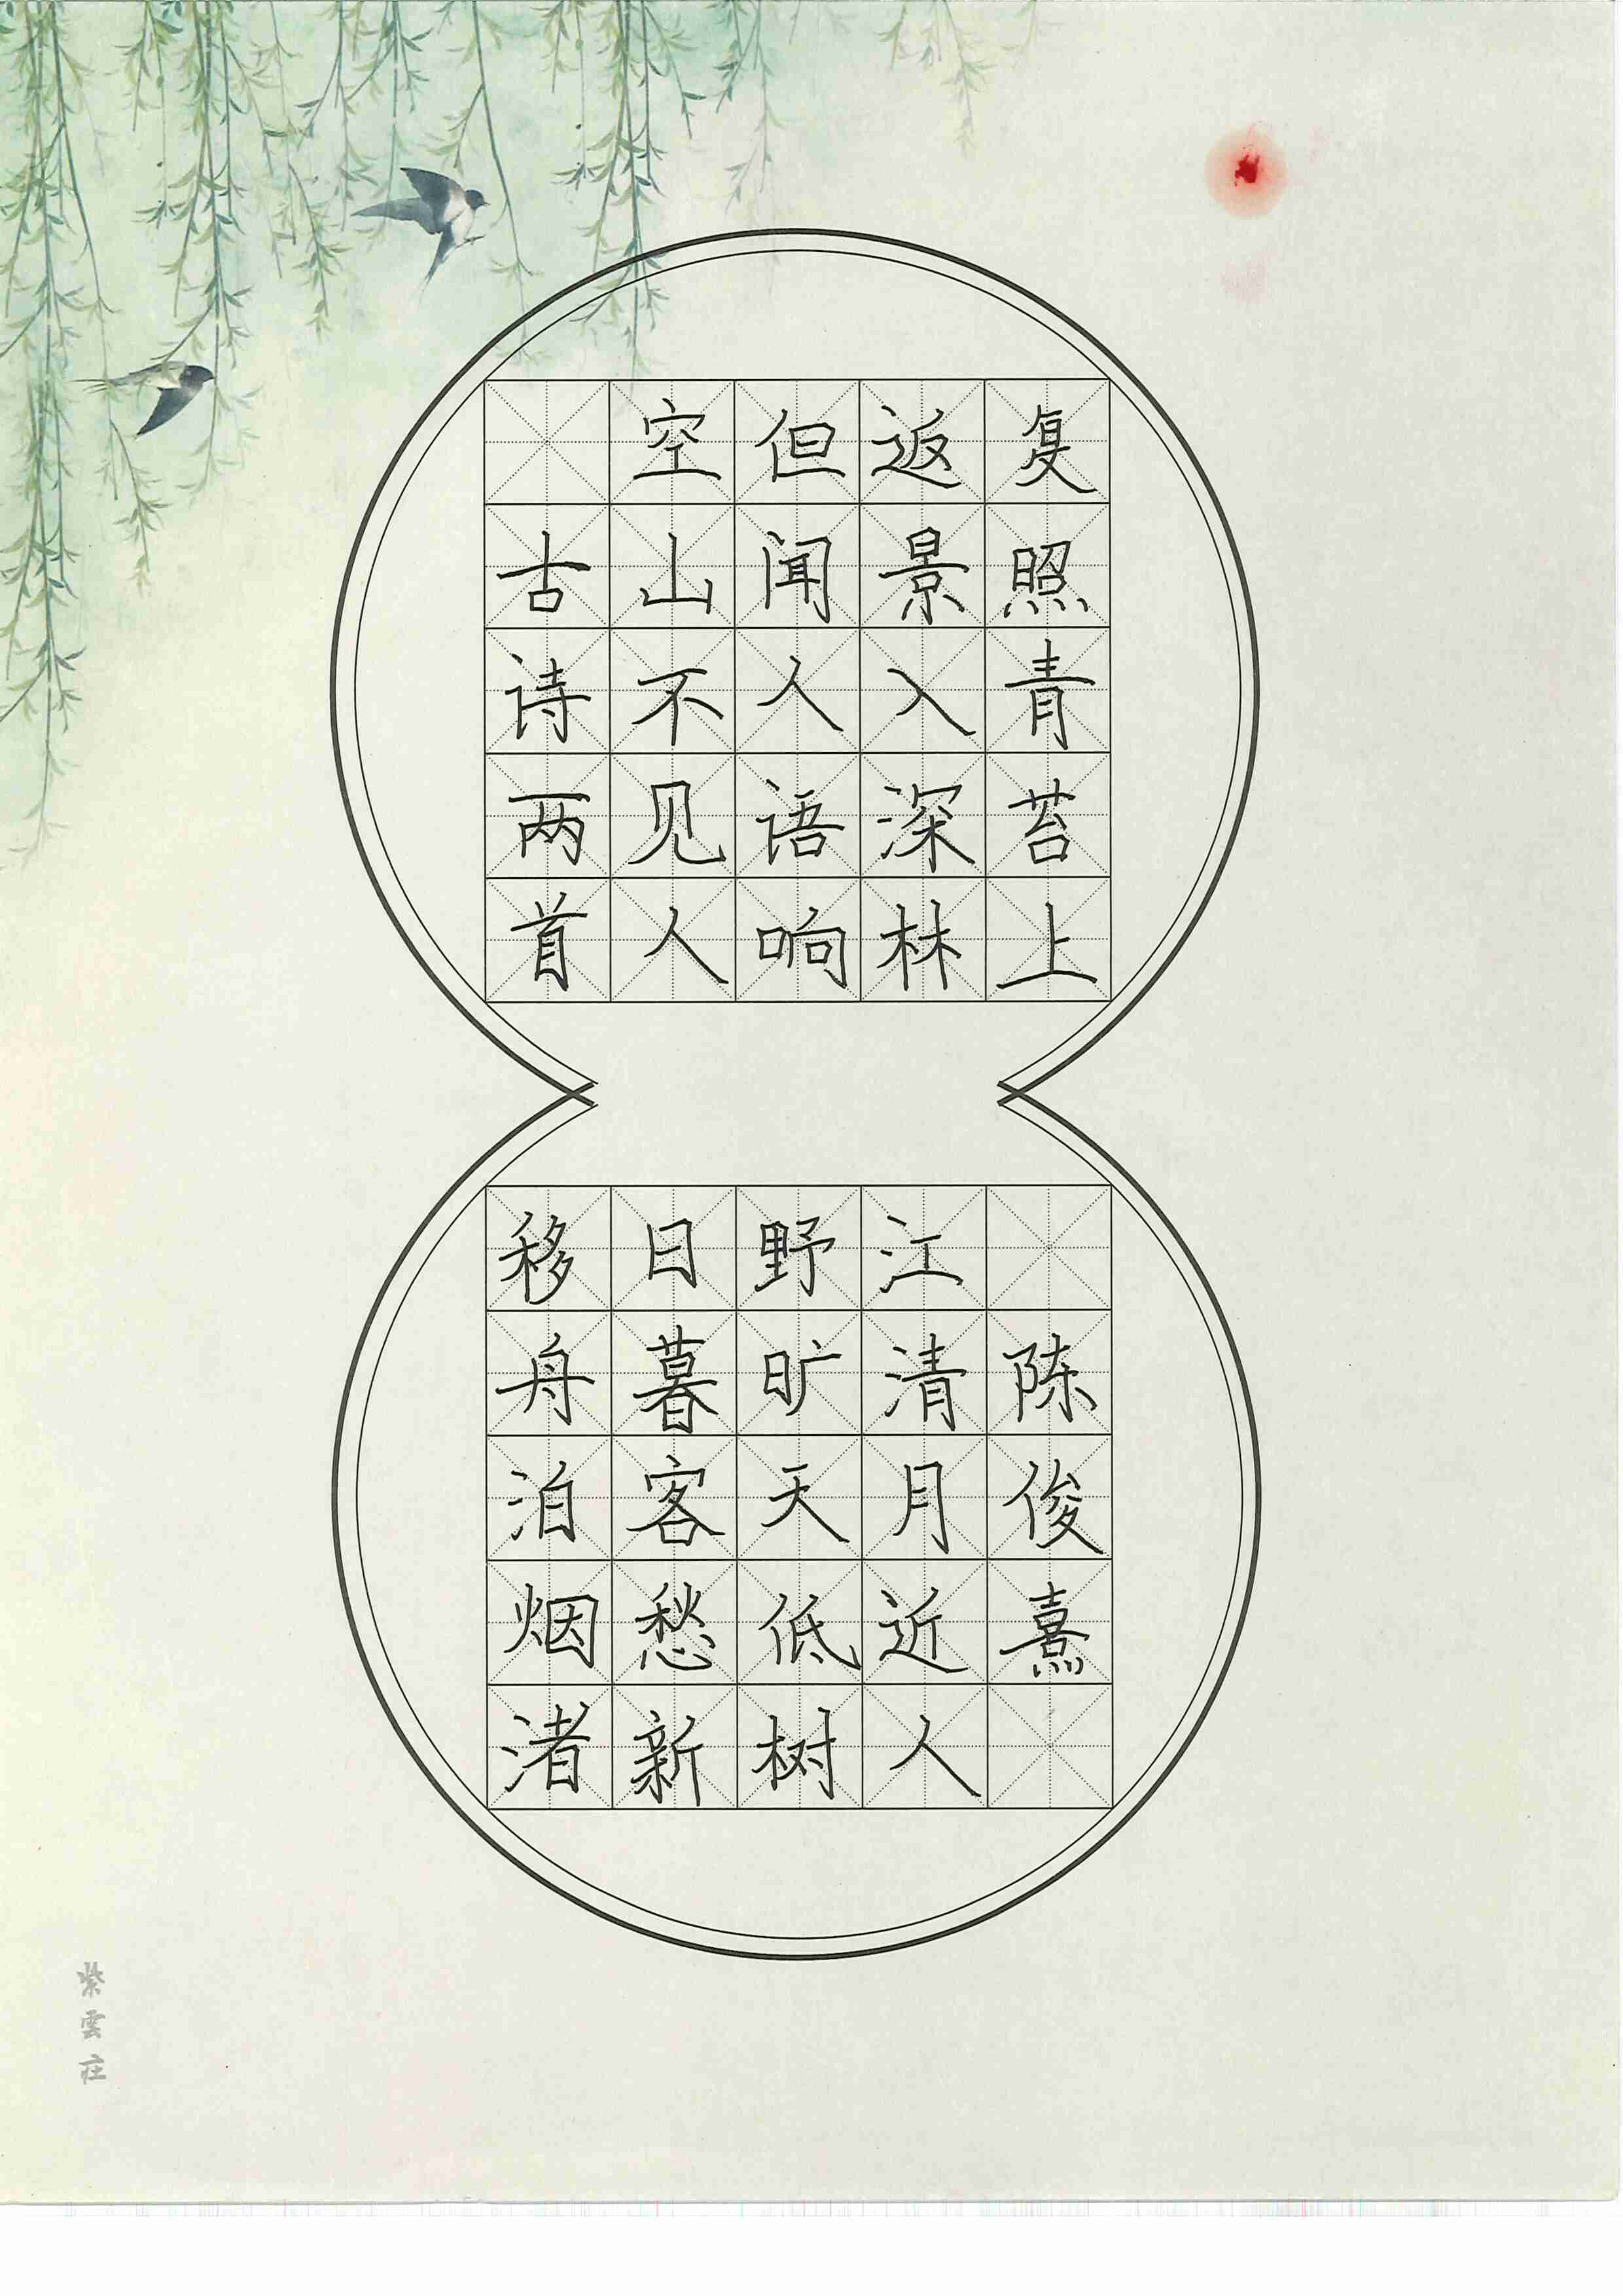 古诗两首
空山不见人
但闻人语响
返景入深林
复照青苔上
移舟泊烟渚
日暮客愁新
野旷天低树
江清月近人
陈俊熹
紫雲庄